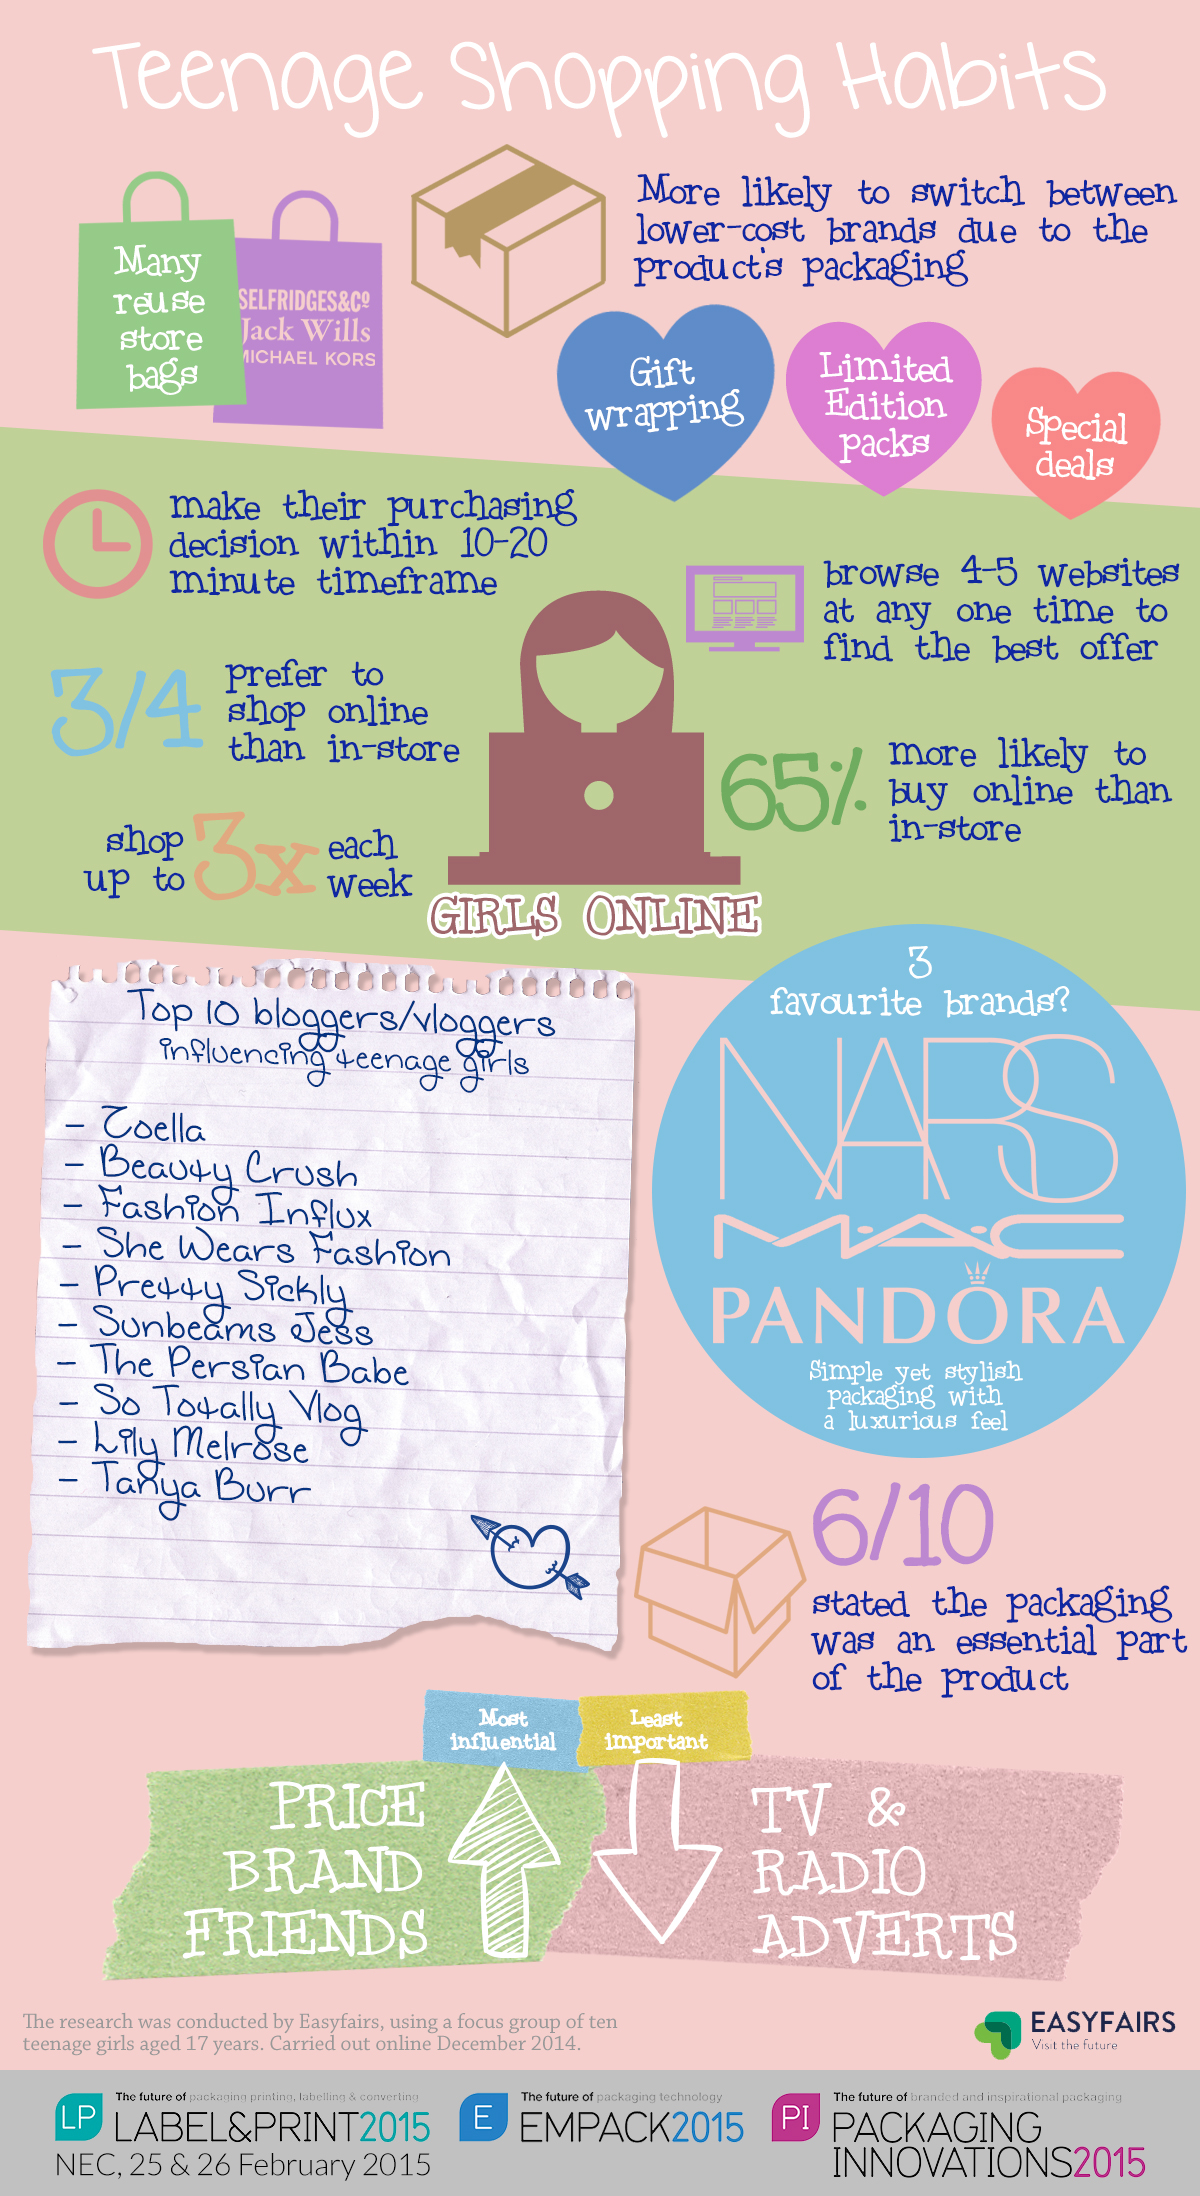 Teenage Shopping Habits
Many
reuse
store
bags
SELFRIDGES&Cº
Jack Wills
MICHAEL KORS
More likely to switch between
lower-cost brands due to the
product's packaging
Gift
wrapping
Limited
Edition
packs
Special
deals
make their purchasing
decision within 10-20
minute timeframe
browse 4-5 websites
at any one time to
find the best offer
3/4
prefer to
shop online
than in-store
65%
more likely to
buy online than
in-store
shop
up to
3x
each
week
GIRLS ONLINE
Top 10 bloggers/vloggers
influencing teenage girls
- Zoella
- Beauty Crush
- Fashion Influx
- She Wears Fashion
- Pretty Sickly
- Sunbeams Jess
- The Persian Babe
- So Totally Vlog
- Lily Melrose
- Tanya Burr
3
favourite brands?
NARS
M·A·C
PANDORA
Simple yet stylish
packaging with
a luxurious feel
6/10
stated the packaging
was an essential part
of the product
Most
influential
Least
important
PRICE
BRAND
FRIENDS
TV &
RADIO
ADVERTS
The research was conducted by Easyfairs, using a focus group of ten
teenage girls aged 17 years. Carried out online December 2014.
EASYFAIRS
Visit the future
LP
The future of packaging printing, labelling & converting
LABEL&PRINT2015
NEC, 25 & 26 February 2015
E
The future of packaging technology
EMPACK2015
PI
The future of branded and inspirational packaging
PACKAGING
INNOVATIONS2015